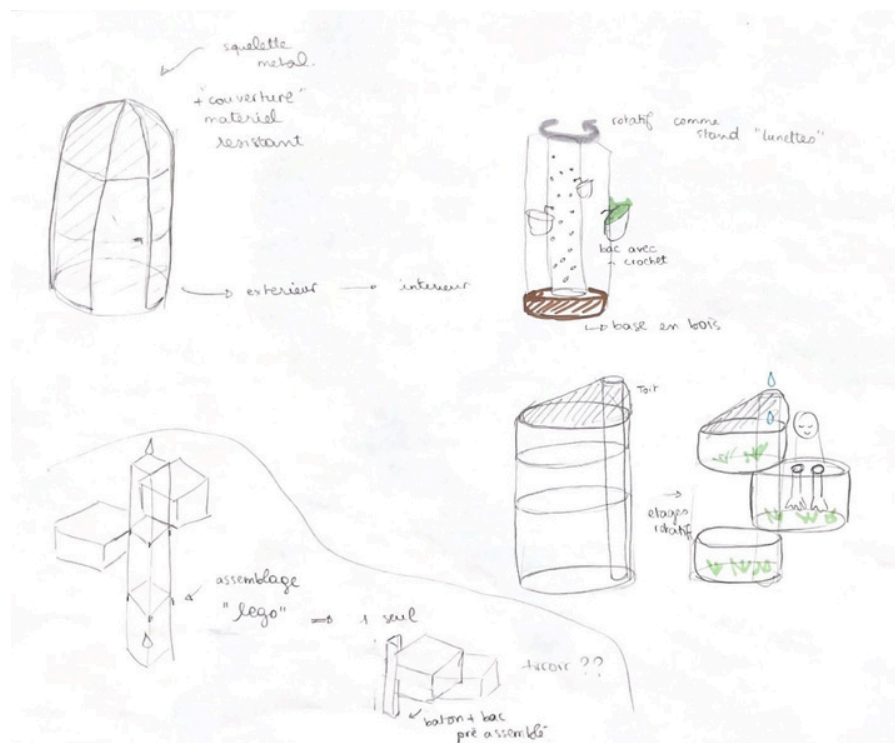 squelette
metal.
+ "couverture"
materiel
resistant
exterieur → interieur
rotatif comme
stand "lunettes"
bac avec
crochet
base en bois
Toit
etages
rotatif
assemblage
"lego" ⇒ 1 seul
tiroir ??
baton + bac
pré assemblé